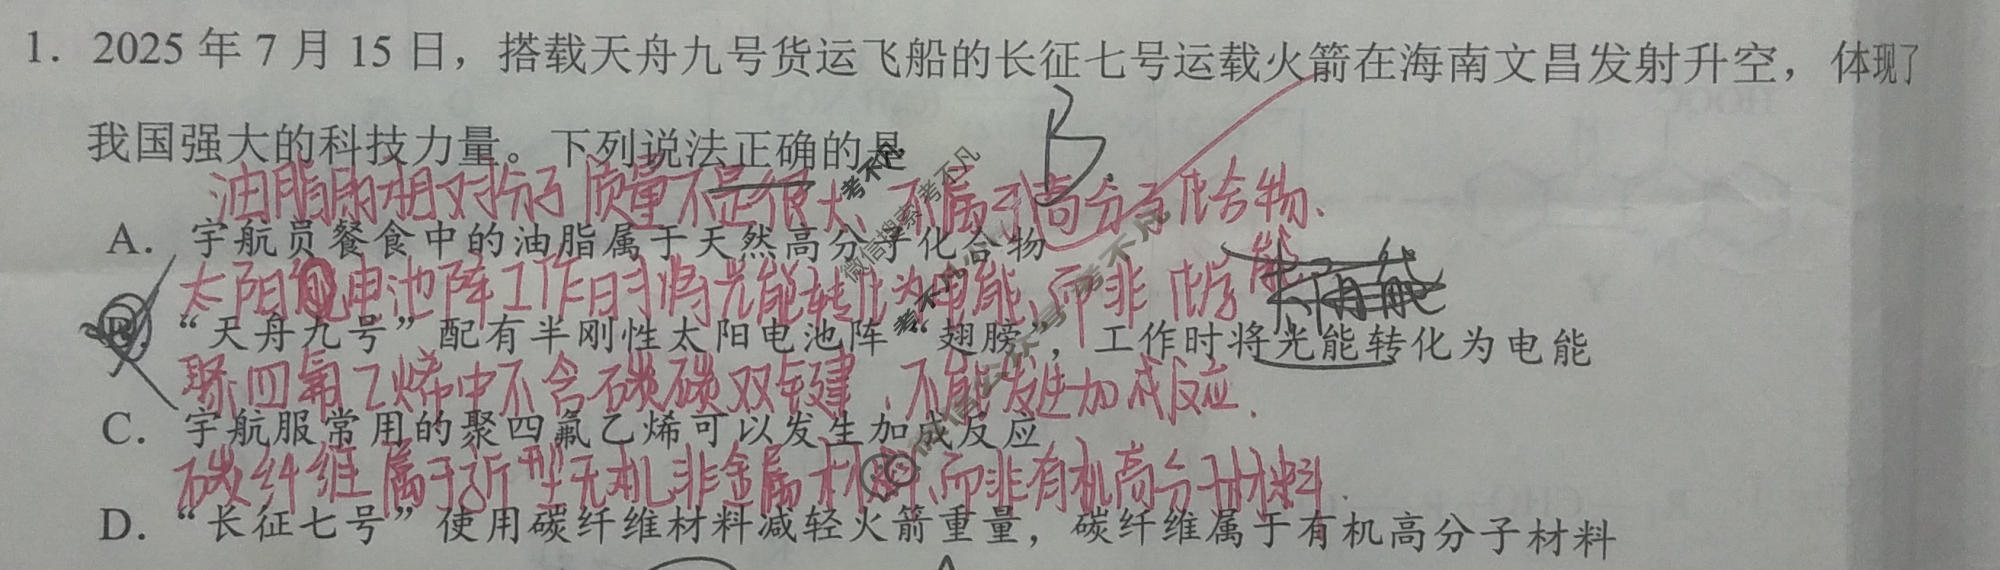 1. 2025 年 7 月 15 日，搭载天舟九号货运飞船的长征七号运载火箭在海南文昌发射升空，体现了
我国强大的科技力量。下列说法正确的是
B.
油脂的相对分子质量不是很大、不属于高分子化合物.
A. 宇航员餐食中的油脂属于天然高分子化合物
太阳能电池阵工作时将光能转化为电能、而非化学能
B. “天舟九号”配有半刚性太阳电池阵“翅膀”，工作时将光能转化为电能
聚四氟乙烯中不含碳碳双键、不能发生加成反应.
C. 宇航服常用的聚四氟乙烯可以发生加成反应
碳纤维属于新型无机非金属材料、而非有机高分子材料.
D. “长征七号”使用碳纤维材料减轻火箭重量，碳纤维属于有机高分子材料
考不凡
微信搜索考不凡